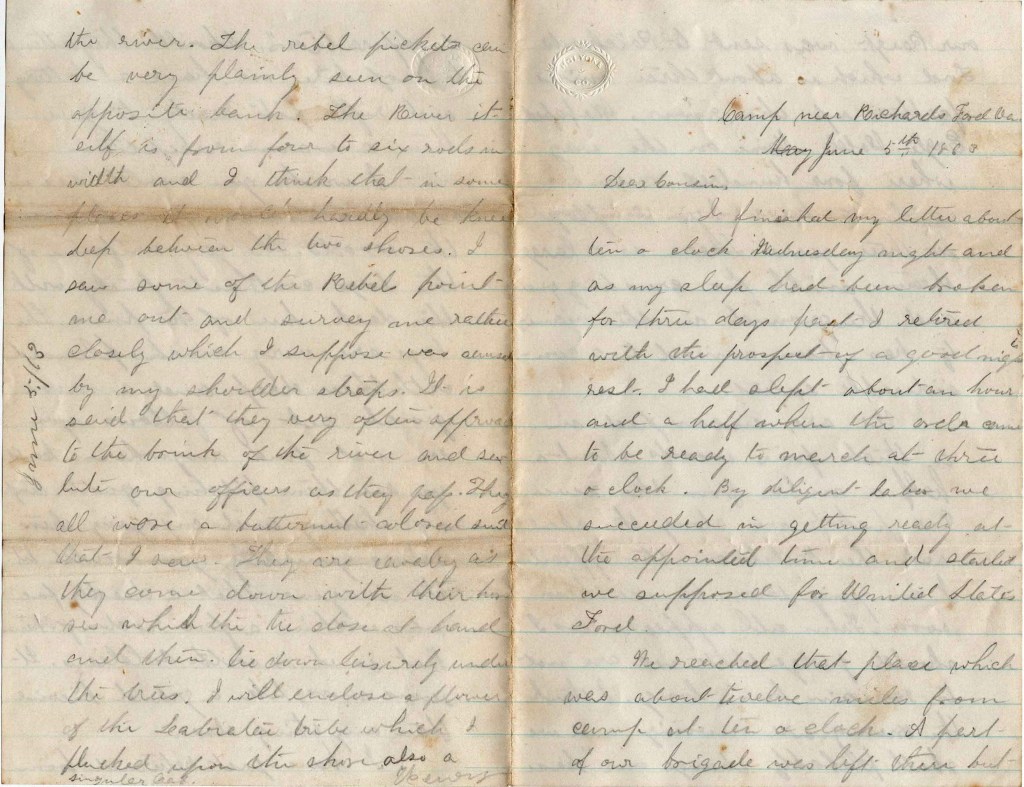 Camp near Richards Ford Va
May June 5th 1863
Dear Cousin,
I finished my letter about
ten o clock Wednesday night and
as my sleep had been broken
for three days past I retired
with the prospect of a good night
rest. I had slept about an hour
and a half when the order came
to be ready to march at three
o clock. By diligent labor we
succeeded in getting ready at
the appointed time and started
we supposed for United States
Ford.
We reached that place which
was about twelve miles from
camp at ten o clock. A part
of our brigade was left there but
the river. The rebel pickets can
be very plainly seen on the
opposite bank. The River it-
self is from four to six rods in
width and I think that in some
places it would hardly be knee
deep between the two shores. I
saw some of the Rebels point
me out and survey me rather
closely which I suppose was caused
by my shoulder straps. It is
said that they very often approach
to the brink of the river and sa-
lute our officers as they pass. They
all wore a butternut colored suit
that I saw. They are cavalry as
they come down with their hor
ses which the tie close at hand
and then lie down leisurely under
the trees. I will enclose a flower
of the Labratea tribe which I
plucked upon the shore also a
singular
Henry
June 5/63